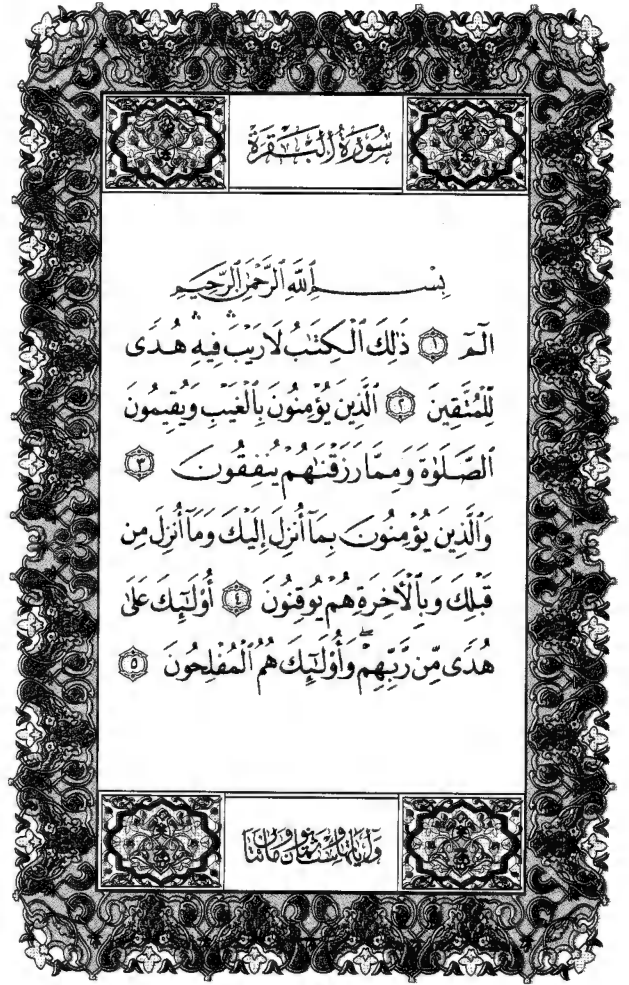 سُورَةُ ٱلْبَقَرَةِ
بِسْمِ ٱللَّهِ ٱلرَّحْمَٰنِ ٱلرَّحِيمِ
الٓمٓ ۝١ ذَٰلِكَ ٱلْكِتَٰبُ لَا رَيْبَ ۛ فِيهِ ۛ هُدًى
لِّلْمُتَّقِينَ ۝٢ ٱلَّذِينَ يُؤْمِنُونَ بِٱلْغَيْبِ وَيُقِيمُونَ
ٱلصَّلَوٰةَ وَمِمَّا رَزَقْنَٰهُمْ يُنفِقُونَ ۝٣
وَٱلَّذِينَ يُؤْمِنُونَ بِمَآ أُنزِلَ إِلَيْكَ وَمَآ أُنزِلَ مِن
قَبْلِكَ وَبِٱلْأَخِرَةِ هُمْ يُوقِنُونَ ۝٤ أُو۟لَٰٓئِكَ عَلَىٰ
هُدًى مِّن رَّبِّهِمْ ۖ وَأُو۟لَٰٓئِكَ هُمُ ٱلْمُفْلِحُونَ ۝٥